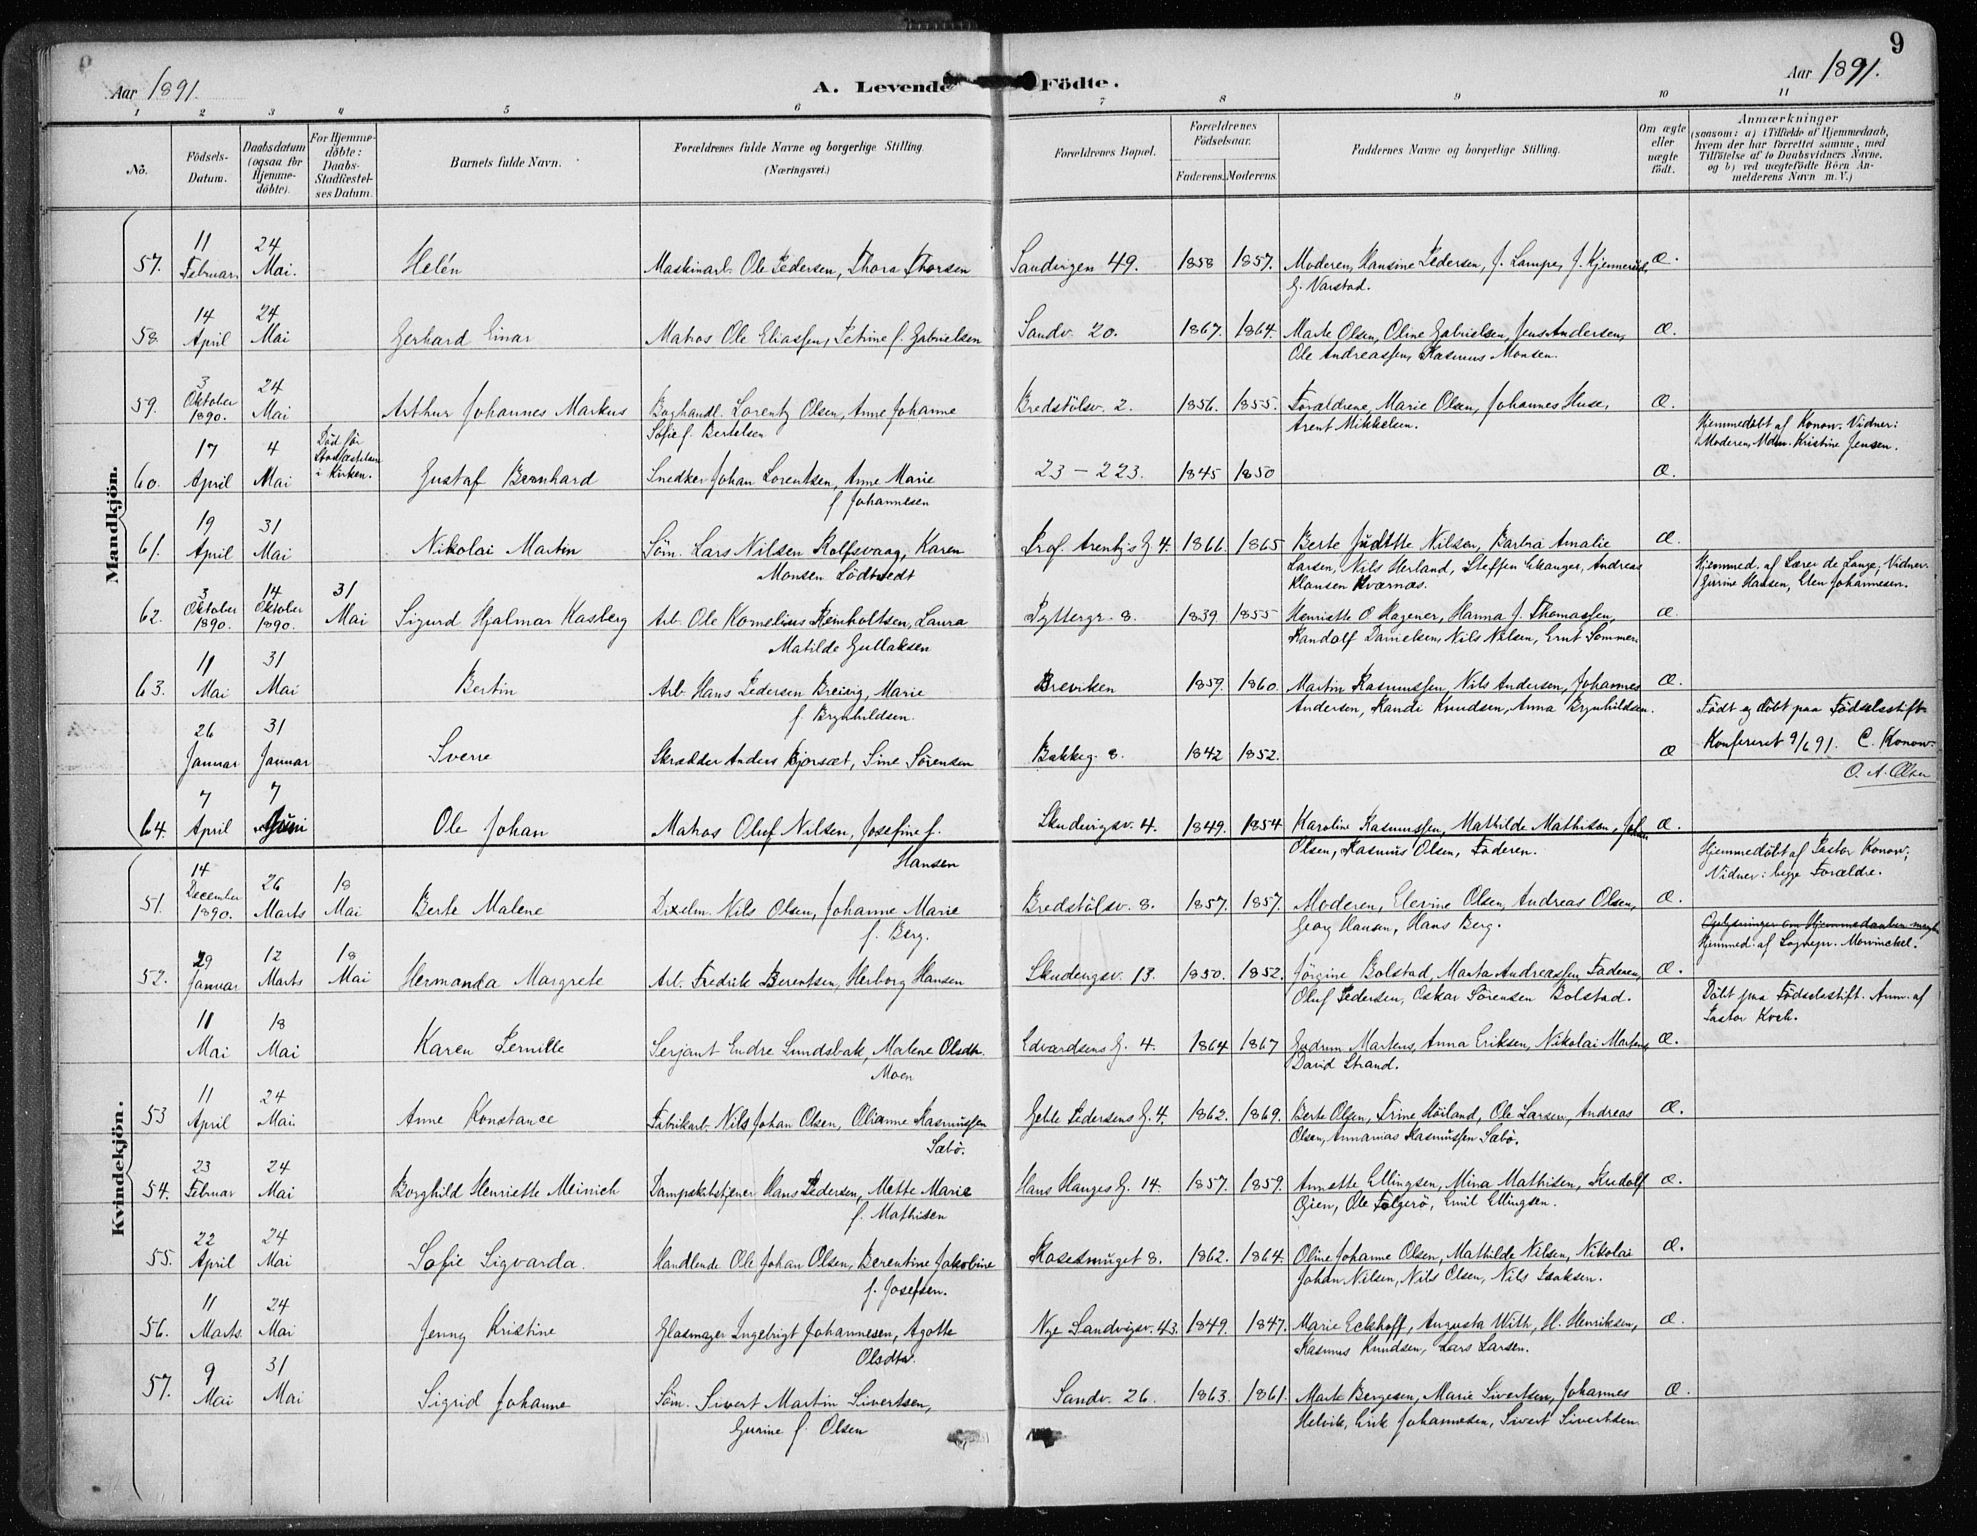 9
Aar 1891.
A. Levende Födte.
Aar 1891.
1 2 3 4 5 6 7 8 9 10 11
No.
Födsels-Datum.
Daabsdatum (ogsaa for Hjemmedöbte).
For Hjemmedöbte: Daabs-Stadfæstelses Datum.
Barnets fulde Navn.
Forældrenes fulde Navne og borgerlige Stilling (Næringsvei.)
Forældrenes Bopæl.
Forældrenes Födselsaar.
Faderens. Moderens.
Faddernes Navne og borgerlige Stilling.
Om ægte eller uægte födt.
Anmærkninger
(saasom: a) i Tilfælde af Hjemmedaab, hvem der har forrettet samme, med Tilföielse af to Daabsvidners Navne, og b) ved uægtefödte Börn Anmelderens Navn m. V.)
Mandkjön.
57. 11 Februar 24 Mai. Helén Maskinarb. Ole Pedersen, Thora Thorsen Sandvigen 49. 1858 1857. Moderen, Hansine Pedersen, J. Lampe, J. Kjennerud, Æ.
G. Varstad.
58. 14 April 24 Mai Gerhard Einar Matros Ole Eliassen, Petrine f. Gabrielsen Sandv. 20. 1867. 1864. Marte Olsen, Oline Gabrielsen, Jens Andersen, Æ.
Ole Andreassen, Rasmus Monsen.
59. 3 Oktober 1890. 24 Mai Arthur Johannes Markus Boghandl. Lorentz Olsen, Anne Johanne Bredstölsv. 2. 1856. 1855. Forældrene, Marie Olsen, Johannes Huse, Æ.
Sofie f. Bertelsen Arent Mikkelsen.
60. 17 April 4 Mai Död för Stadfæstelsen i Kirken. Gustaf Bernhard Snedker Johan Lorentsen, Anne Marie 23 - 223. 1845 1850 Æ. Hjemmedöbt af Konow. Vidner: Moderen, Mdm. Kristine Jensen.
f. Johannesen
61. 19 April 31 Mai Nikolai Martin Söm. Lars Nilsen Rolfsvaag, Karen Prof. Arentz's G. 4. 1866. 1865 Berte Juditte Nilsen, Barbra Amalie Æ.
Monsen Lödtvedt Larsen, Nils Herland, Steffen Changer, Andreas
Hansen Kværnæs.
62. 3 Oktober 1890. 14 Oktober 1890. 31 Mai Sigurd Hjalmar Kasberg Arb. Ole Kornelius Reinholtsen, Laura Lyttergr. 8. 1839 1855 Henriette O. Hagener, Hanna J. Thomassen, Æ Hjemmed. af Lærer de Lange, Vidner: Gurine Hansen, Elen Johannesen.
Matilde Gullaksen Randolf Danielsen, Nils Nilsen, Ernt Sommer.
63. 11 Mai 31 Mai Bertin Arb. Hans Pedersen Breivig, Marie Breviken 1859. 1860. Martin Rasmussen, Nils Andersen, Johannes Æ.
f. Brynhildsen. Andersen, Randi Knudsen, Anna Brynhildsen.
26 Januar 31 Januar Sverre Skrædder Anders Bjorsæt, Sine Sörensen Bakkeg. 8. 1842 1852. Æ Födt og döbt paa Födselsstift.
Konfereret 9/6 91. C. Konow.
O. A. Olsen
64. 7 April 7 Juni Ole Johan Matros Oluf Nilsen, Josefine f. Skudevigsv. 4. 1849. 1854 Karoline Rasmussen, Mathilde Mathisen, Johan Æ.
Hansen Olsen, Rasmus Olsen, Faderen.
Kvindekjön.
51. 14 December 1890. 26 Marts 18 Mai Berte Malene Drxelm. Nils Olsen, Johanne Marie Bredstölsv. 8. 1857. 1857. Moderen, Elevine Olsen, Andreas Olsen, Æ. Hjemmedöbt af Pastor Konow; Vidner: begge Forældre.
f. Berg. Georg Hansen, Hans Berg.
52. 29 Januar 12 Marts 18 Mai Hermanda Margrete Arb. Fredrik Berentsen, Herborg Hansen Skudevigsv. 13. 1850. 1852. Jörgine Bolstad, Marta Andreassen, Faderen, Æ. Oplysninger om Hjemmedaaben mangler Hjemmed. af Sognepr. Mowinckel.
Oluf Pedersen, Oskar Sörensen Bolstad.
11 Mai 18 Mai Karen Pernille Serjant Endre Sundsbak, Malene Olsdtr. Edvardsens G. 4. 1864 1867 Gudrun Martens, Anna Eriksen, Nikolai Martens, Æ. Döbt paa Födselsstift. Anm. af Pastor Koch.
Moen David Strand.
53 11 April 24 Mai. Anne Konstance Fabrikarb. Nils Johan Olsen, Olianne Rasmussen Geble Pedersens G. 4. 1862. 1869. Berte Olsen, Trine Höiland, Ole Larsen, Andreas Æ.
Sæbö. Olsen, Annanias Rasmussen Sæbö.
54. 23 Februar 24 Mai Borghild Henriette Meinich Dampskibstjener Hans Pedersen, Mette Marie Hans Hauges G. 14. 1857. 1859. Annette Ellingsen, Mina Mathisen, Rudolf Æ.
f. Mathisen Gjien, Ole Folgerö, Emil Ellingsen.
55. 22 April 24 Mai Sofie Sigvarda. Handlende Ole Johan Olsen, Berentine Jakobine Rosesmuget 8. 1862. 1864. Oline Johanne Olsen, Mathilde Nilsen, Nikolai Æ.
f. Josefsen. Johan Nilsen, Nils Olsen, Nils Isaksen.
56. 11 Marts. 24 Mai Jenny Kristine Glasmager Ingebrigt Johannesen, Agotte Nye Sandvigsv. 43. 1849. 1847. Marie Eckhoff, Augusta With, H. Henriksen, Æ.
Olsdtr. Rasmus Knudsen, Lars Larsen.
57. 9 Mai 31 Mai Sigrid Johanne Söm. Sivert Martin Sivertsen, Sandv. 26. 1863. 1861. Marte Bergesen, Marie Sivertsen, Johannes Æ.
Gurine f. Olsen Helvik, Erik Johannesen, Sivert Sivertsen.